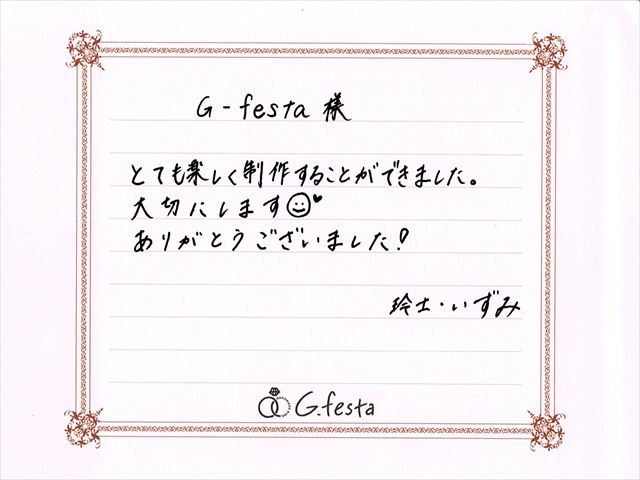 G-festa 様
とても楽しく制作することができました。
大切にします
ありがとうございました!
玲士・いずみ
G.festa